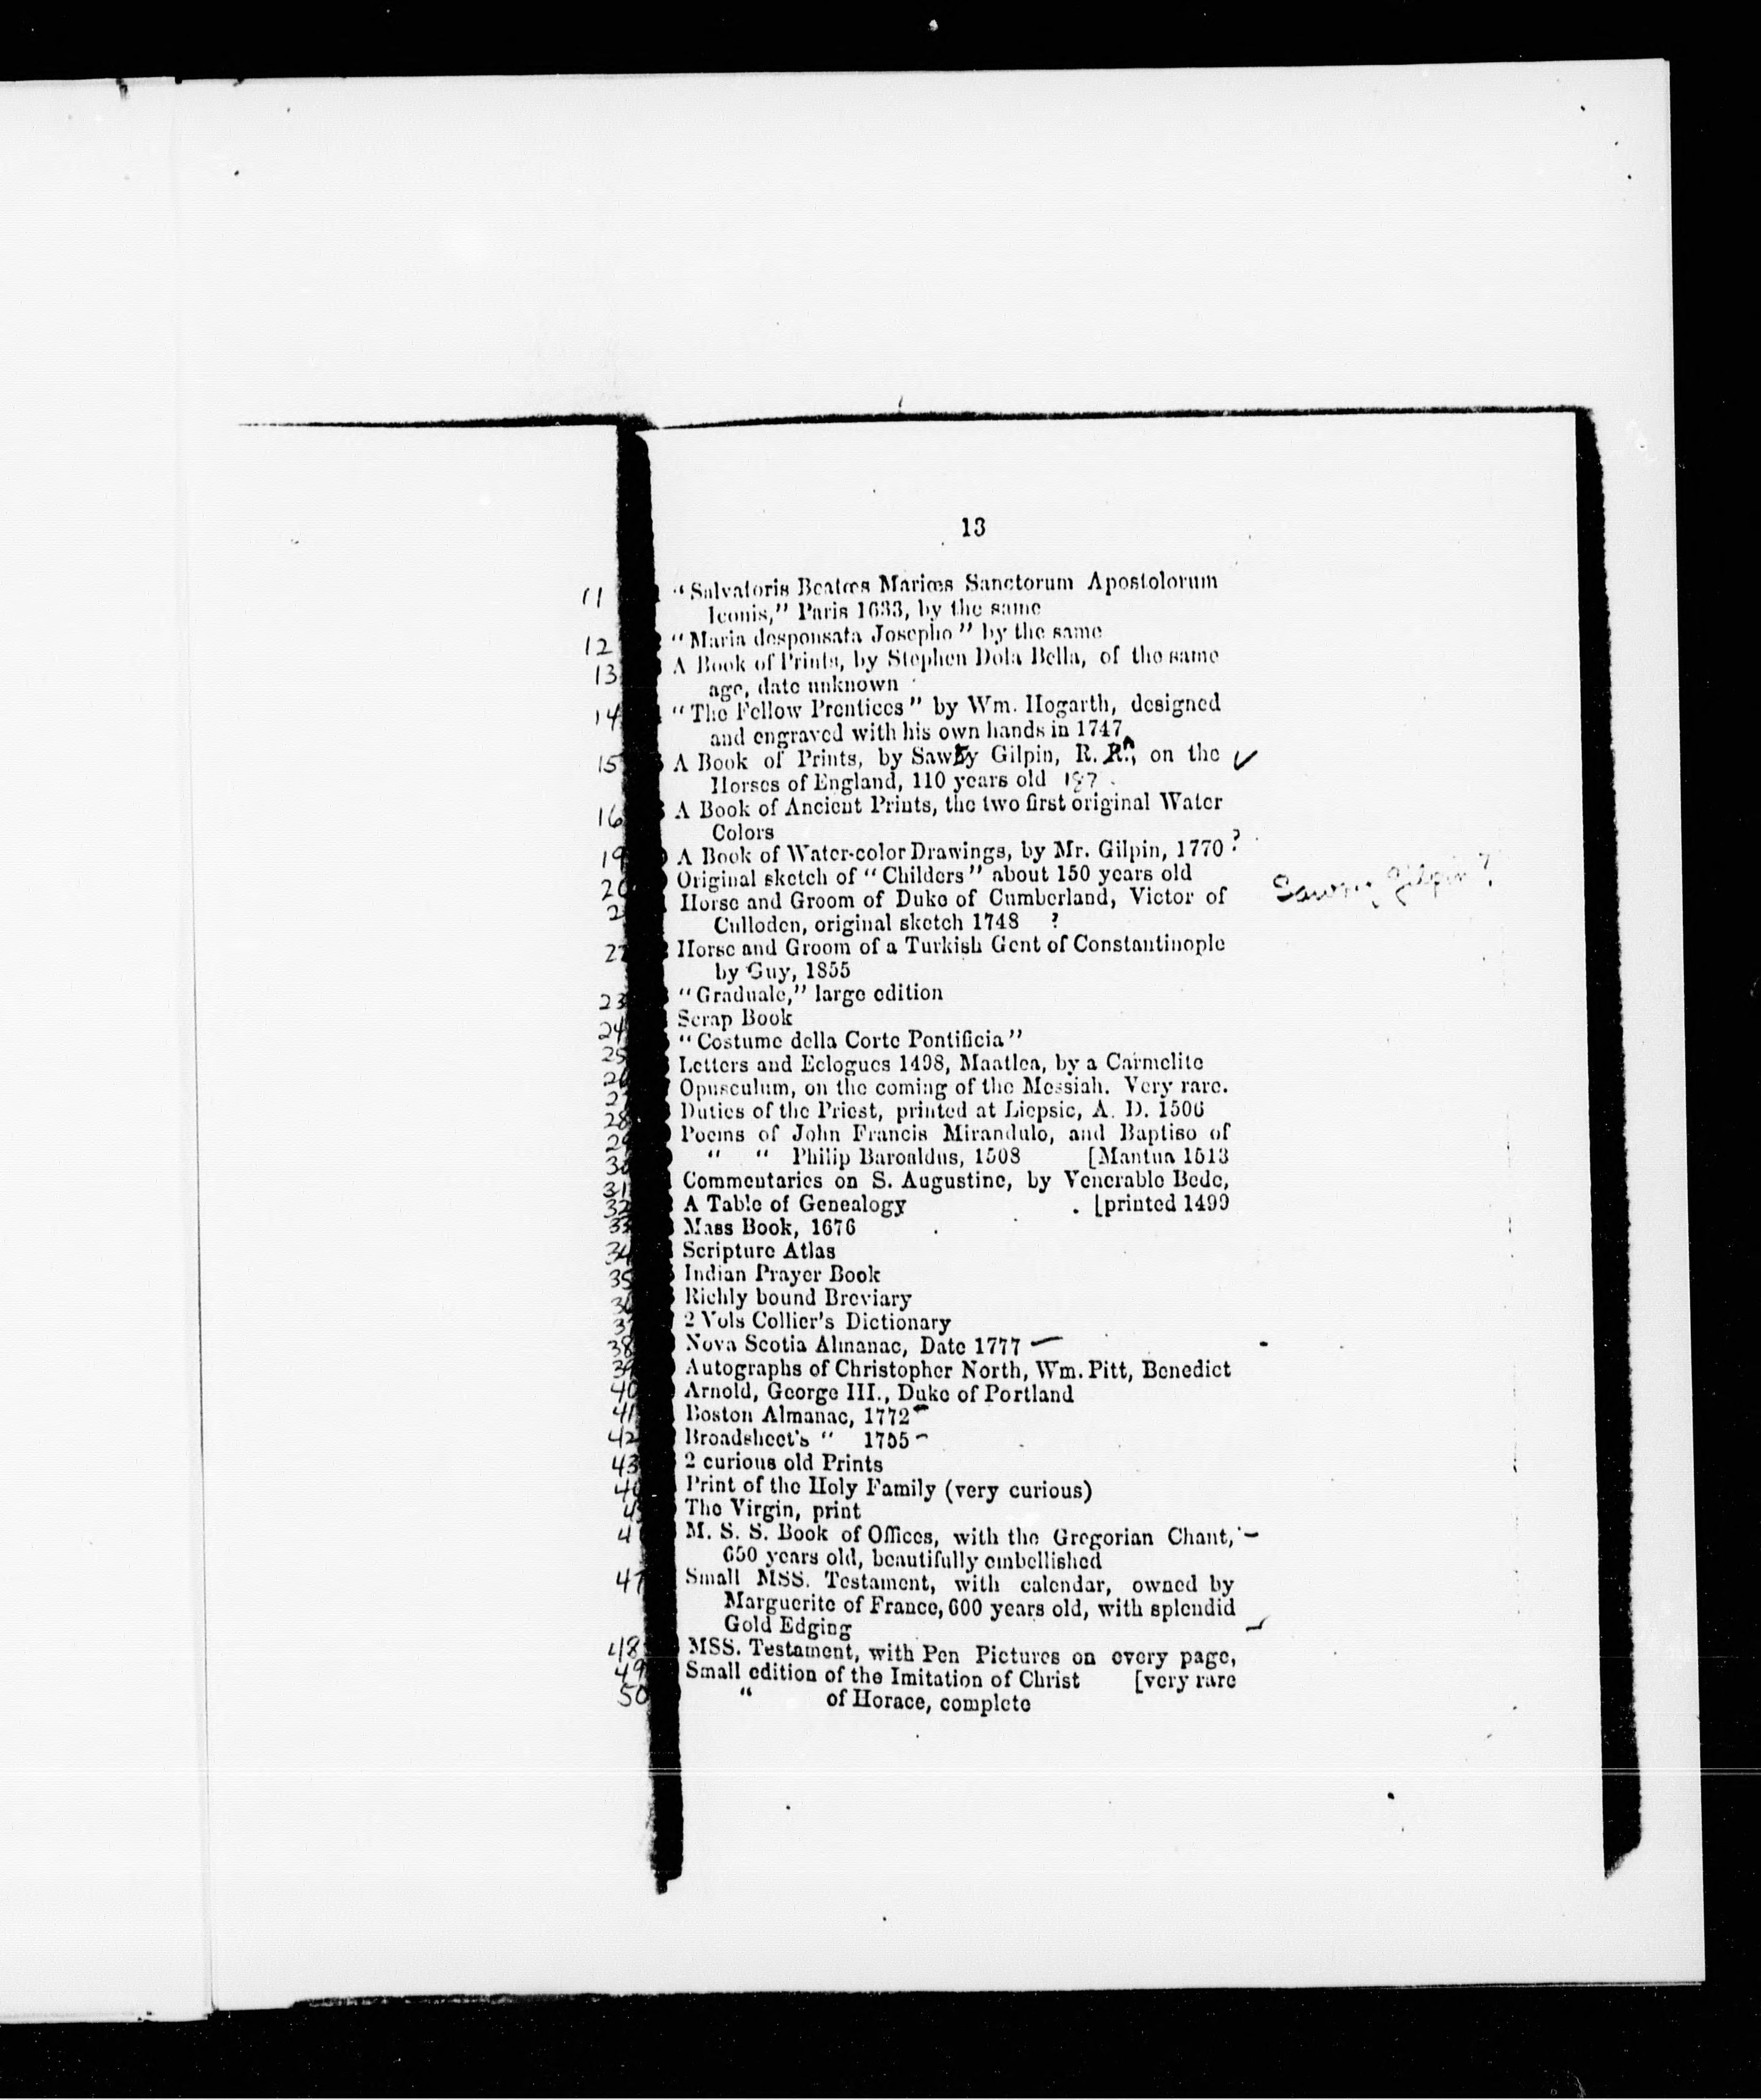 13
11 "Salvatoris Beatœs Mariœs Sanctorum Apostolorum
Iconis," Paris 1633, by the same
12 "Maria desponsata Josepho" by the same
13 A Book of Prints, by Stephen Dola Bella, of the same
age, date unknown
14 "The Fellow Prentices" by Wm. Hogarth, designed
and engraved with his own hands in 1747
15 A Book of Prints, by Sawby Gilpin, R. R., on the
Horses of England, 110 years old
16 A Book of Ancient Prints, the two first original Water
Colors
19 A Book of Water-color Drawings, by Mr. Gilpin, 1770 ?
20 Original sketch of "Childers" about 150 years old
Sawrey Gilpin ?
2 Horse and Groom of Duke of Cumberland, Victor of
Culloden, original sketch 1748 ?
22 Horse and Groom of a Turkish Gent of Constantinople
by Guy, 1855
23 "Graduale," large edition
24 Scrap Book
25 "Costume della Corte Pontificia"
26 Letters and Eclogues 1498, Maatlea, by a Carmelite
27 Opusculum, on the coming of the Messiah. Very rare.
28 Duties of the Priest, printed at Liepsic, A. D. 1506
29 Poems of John Francis Mirandulo, and Baptiso of
30 " " Philip Baroaldus, 1508 [Mantua 1513
31 Commentaries on S. Augustine, by Venerable Bede,
32 A Table of Genealogy [printed 1499
33 Mass Book, 1676
34 Scripture Atlas
35 Indian Prayer Book
36 Richly bound Breviary
37 2 Vols Collier's Dictionary
38 Nova Scotia Almanac, Date 1777
39 Autographs of Christopher North, Wm. Pitt, Benedict
40 Arnold, George III., Duke of Portland
41 Boston Almanac, 1772
42 Broadsheet's " 1755
43 2 curious old Prints
4 Print of the Holy Family (very curious)
45 The Virgin, print
4 M. S. S. Book of Offices, with the Gregorian Chant,
650 years old, beautifully embellished
47 Small MSS. Testament, with calendar, owned by
Marguerite of France, 600 years old, with splendid
Gold Edging
48 MSS. Testament, with Pen Pictures on every page,
49 Small edition of the Imitation of Christ [very rare
50 " of Horace, complete